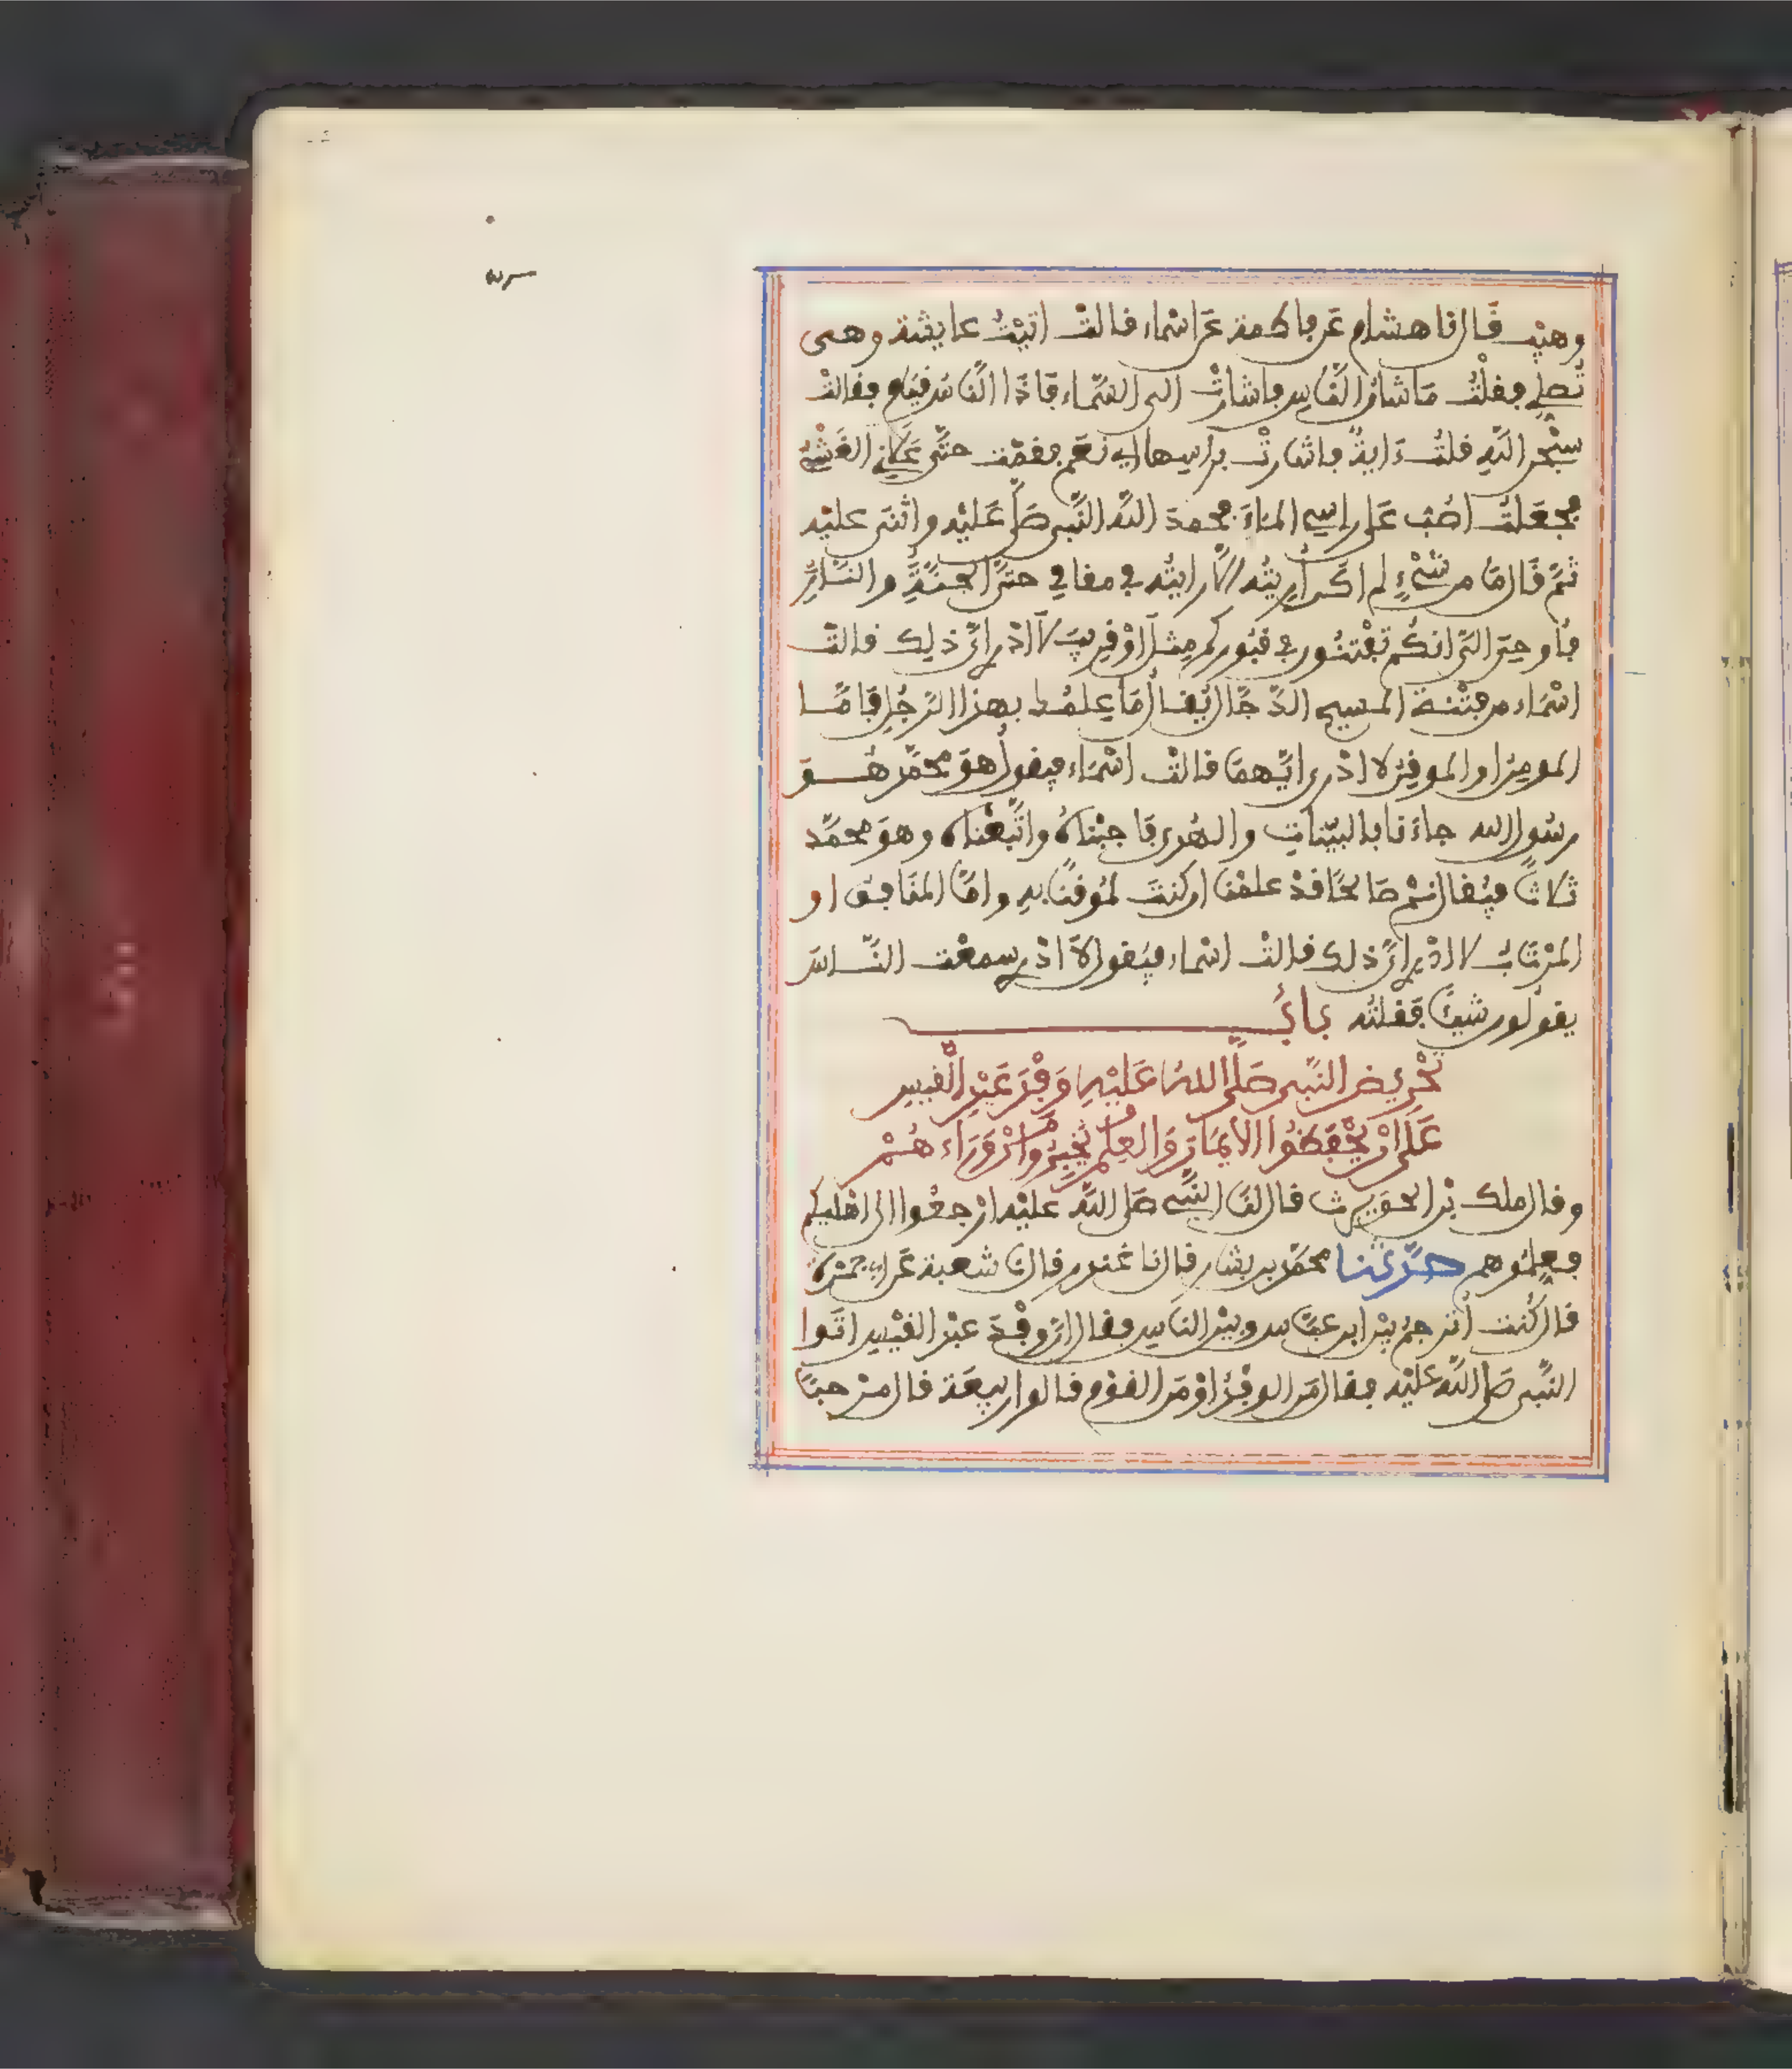 وهيب قال نا هشام عن فاطمة عن اسماء قالت اتيت عايشة وهي
تصلي فقلت ما شان الناس فاشارت الى السماء فاذا الناس قيام فقالت
سبحن الله قلت ءاية فاشارت براسها اي نعم فقمت حتى علاني الغشي
فجعلت اصب على راسي الماء فحمد الله النبي صلى عليه واثنى عليه
ثم قال ما من شيء لم اكن أريته الا رايته في مقامي حتى الجنة والنار
فأوحي الي انكم تفتنون في قبوركم مثل او قريب لا ادري اي ذلك قالت
اسماء من فتنة المسيح الدجال يقال ما علمك بهذا الرجل فاما
المومن او الموقن لا ادري ايهما قالت اسماء فيقول هو محمد هو
رسول الله جاءنا بالبينات والهدى فاجبناه واتبعناه وهو محمد
ثلاثا فيقال نم صالحا قد علمنا ان كنت لموقنا به واما المنافق او
المرتاب لا ادري اي ذلك قالت اسماء فيقول لا ادري سمعت الناس
يقولون شيئا فقلته باب
تحريض النبي صلى الله عليه وفد عبد القيس
على ان يحفظوا الايمان والعلم ويخبروا من وراءهم
وقال ملك بن الحويرث قال لنا النبي صلى الله عليه ارجعوا الى اهليكم
فعلموهم حدثنا محمد بن بشار قال نا غندر قال نا شعبة عن ابي جمرة
قال كنت أترجم بين ابن عباس وبين الناس فقال ان وفد عبد القيس اتوا
النبي صلى الله عليه فقال من الوفد او من القوم قالوا ربيعة قال مرحبا